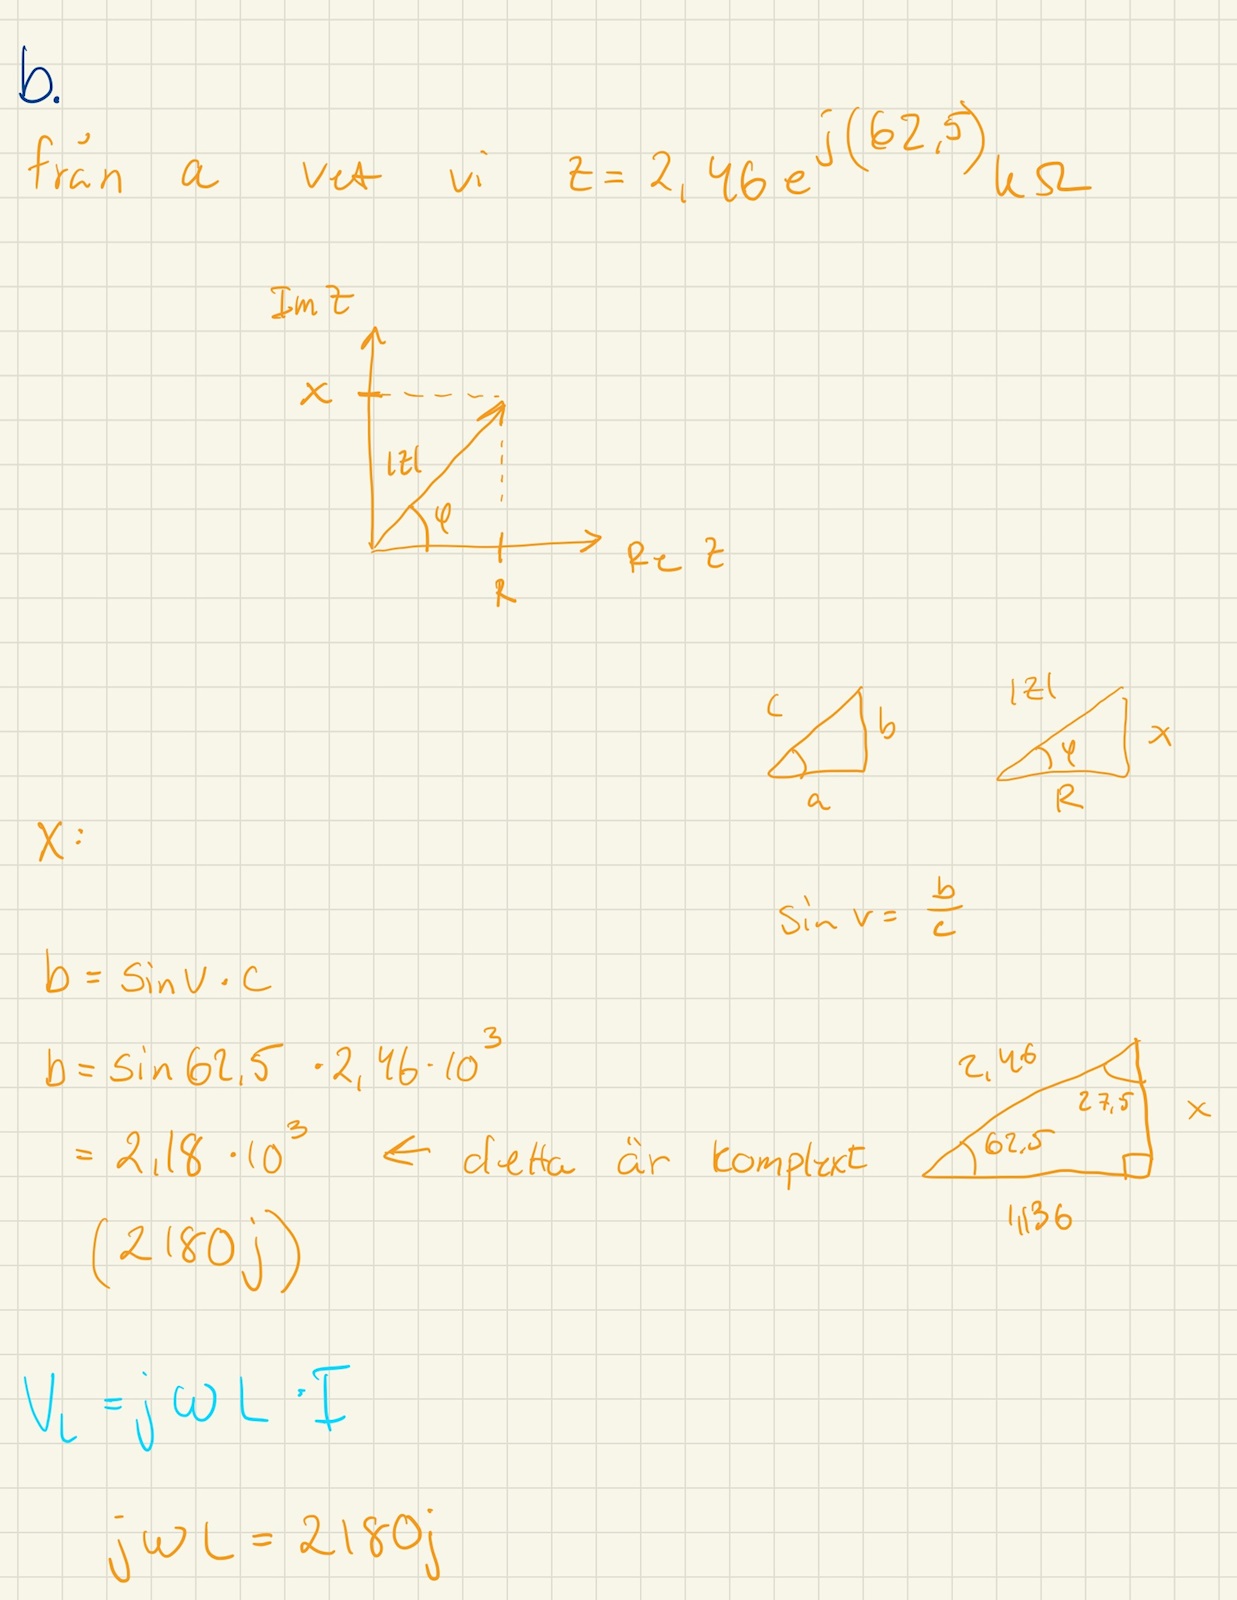 b.
från a vet vi z = 2,46 e^j(62,5) kΩ
Im z
x
|z|
φ
Re z
R
c
b
a
|z|
x
φ
R
X:
sin v = b/c
b = sin v · c
b = sin 62,5 · 2,46 · 10^3
= 2,18 · 10^3 ← detta är komplext
2,46
27,5
x
62,5
1,136
(2180j)
V_L = jωL · I
jωL = 2180j